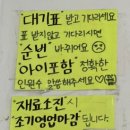 "대기표" 받고 기다리세요
표 받지않고 기다리시면
순번 바뀌어요
아이포함 정확한
인원수 말씀해주세요
"재료소진"시
조기영업마감
됩니다.